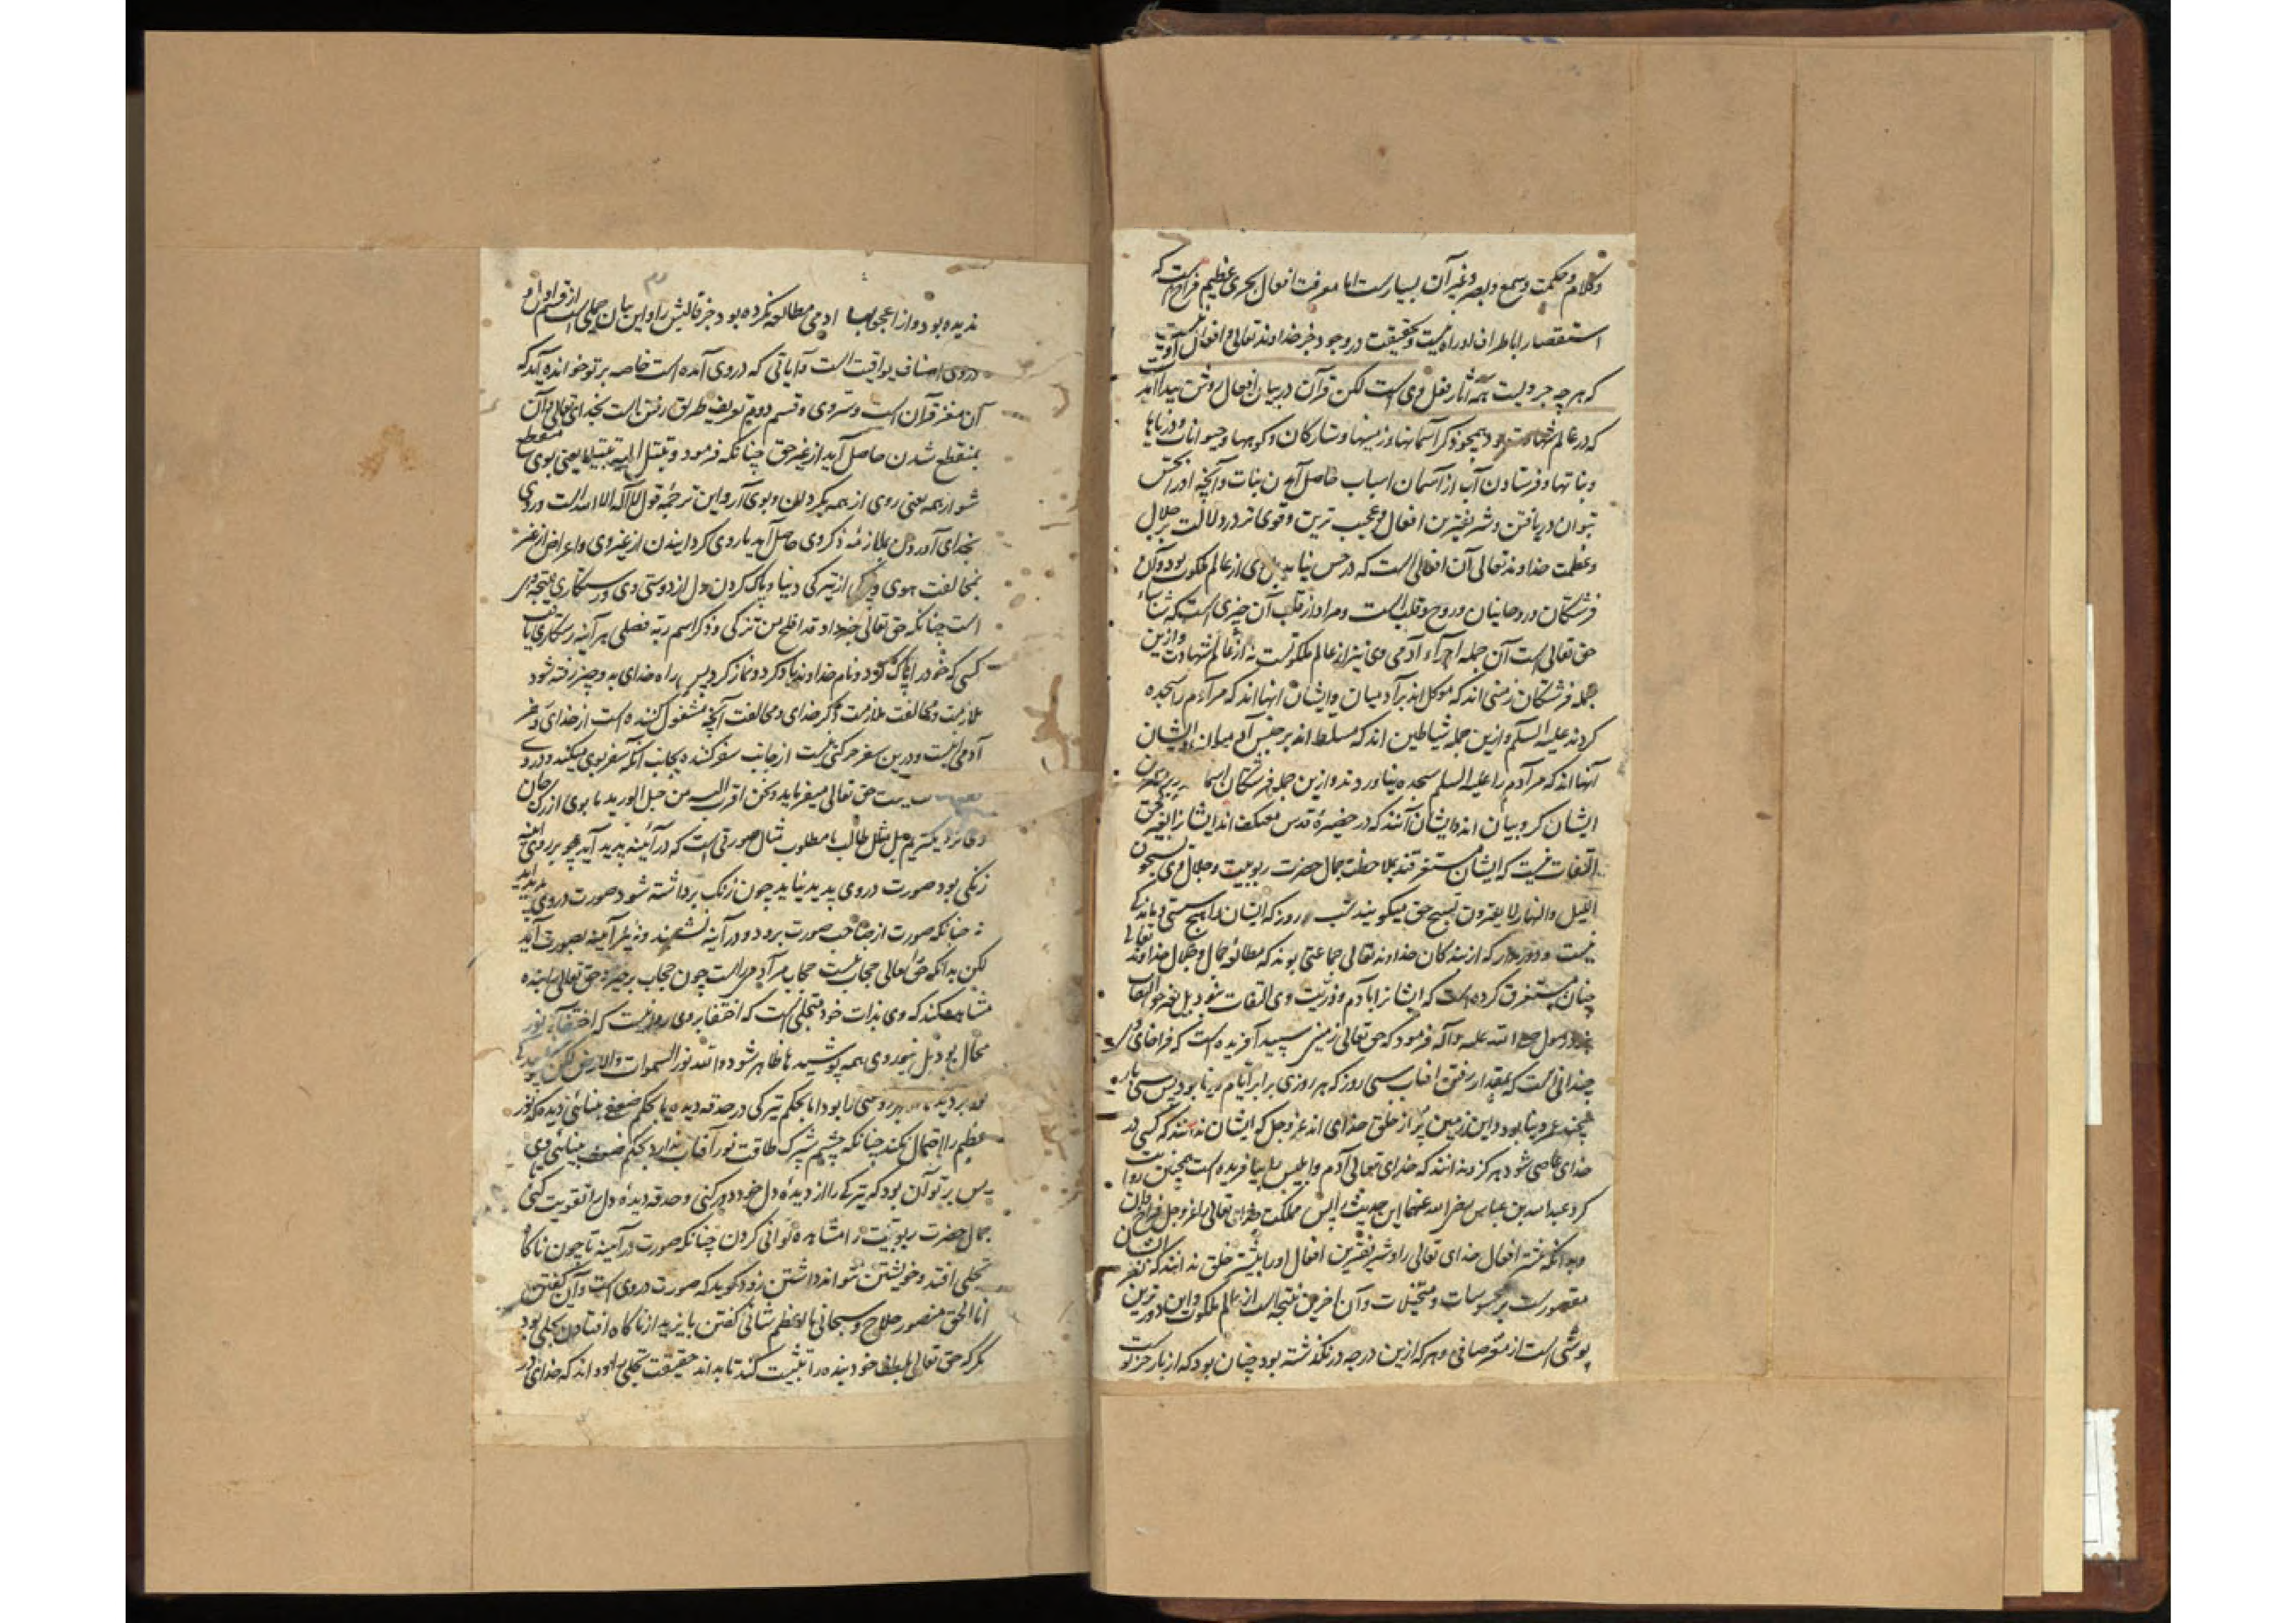 وکلام وحکمت وسمع وبصر وغیر آن بسیارست اما معرفت افعال بحری عظیم فراخ است که
استقصار اباطراف او راه نیست وبحقیقت در وجود جز خداوند تعالی و افعال او نیست
که هر چه جز ویست همه آثار فعل وی است لکن قرآن در بیان افعال روشن پیدا آمد
که در عالم شهادت بود همچو ذکر آسمانها وزمینها وستارگان وکوهها وحیوانات ودریاها
ونباتها وفرستادن آب از آسمان اسباب حاصل آمدن نبات وآنچه او را بحس
بتوان دریافتن وشریفترین افعال وعجیب ترین وقوی تر در دلالت بر جلال
وعظمت خداوند تعالی آن افعالی است که در حس نیاید بل وی از عالم ملکوت بود وآن
فرشتگان وروحانیان وروح وقلب است ومراد از قلب آن چیزی است که شناسای
حق تعالی است آن جمله اجزاء آدمی وی نیز از عالم ملکوتست نه از عالم شهادت وازین
جمله فرشتگان زمینی اند که موکل اند بر آدمیان وایشان انها اند که مر آدم را سجده
کردند علیه السلم وازین جمله شیاطین اند که مسلط اند بر جنس آدمیان وایشان
آنها اند که مر آدم را علیه السلم سجده نیاوردند وازین جمله فرشتگان
ایشان کروبیان اند وایشان آنند که در حضیرۀ قدس معتکف اند ایشانرا بغیر حق
التفات نیست که ایشان مستغرقند بملاحظت جمال حضرت ربوبیت وجلال وی یسبحون
اللیل والنهار لا یفترون تسبیح حق میگویند شب وروز که ایشان را هیچ سستی وماندگی
نیست ودور مدار که از بندگان خداوند تعالی جماعتی بوند که مطالعه جمال وجلال خداوند تعالی
چنان مستغرق کرده است که ایشانرا بآدم وذریت وی التفات نبود
رسول صلی الله علیه وآله فرمود که حق تعالی زمینی سپید آفریده است که فراخای وی
چندانی است که بمقدار رفتن افتاب سی روز که هر روزی برابر ایام دنیا بود پس سی بار
چند عمر دنیا بود واین زمین پر از خلق خدای اند عز وجل که ایشان ندانند که کسی در
خدای عاصی شود وهرگز ندانند که خدای تعالی آدم وابلیس را بیافریده است همچنین روایت
کرد عبد الله بن عباس رضی الله عنهما این حدیث را پس مملکت خدای تعالی را عز وجل فراخ دان
وبدانکه افعال خدای تعالی را وشریفترین افعال او را بیشتر خلق ندانند که نظر ایشان
مقصورست بر محسوسات ومتخیلات وآن اخرین نتیجه است از عالم ملکوت واین دورترین
پوشی است از مغز صافی وهر که ازین درجه در نگذشته بود چنان بود که از نار جز پوست
ندیده بود واز اعجوبهاء ادمی مطالعه نکرده بود جز قالبش را واین بیان جملی است از قسم اول و
دروی اصناف یواقیت است وآیاتی که دروی آمده است خاصه بر تو خوانده آید که
آن مغز قرآن است وسر وی وقسم دویم تعریف طریق رفتن است بخدای تعالی وآن
بمنقطع شدن حاصل آید از غیر حق چنانکه فرمود وتبتل الیه تبتیلا یعنی بوی منقطع
شو از همه یعنی روی از همه بگردان وبوی آر واین ترجمۀ قول لا اله الا الله است وروی
بخدای آوردن بملازمۀ ذکر وی حاصل آید یا روی گردانیدن از غیر وی واعراض از غیر
بمخالفت هوی و از تیرگی دنیا وپاک کردن دل از دوستی وی ورستگاری نتیجه وی
است چنانکه حق تعالی خبر داد قد افلح من تزکی وذکر اسم ربه فصلی هر آینه رستگاری یافت
کسی که خود را پاک کرد ونام خداوند یاد کرد ونماز کرد پس راه خدای بدو چیز رفته شود
ملازمت ومخالفت ملازمت ذکر خدای ومخالفت آنچه مشغول کننده است از خدای وسفر
آدمی اینست ودرین سفر حرکتی نیست از جانب سفر کننده وبجانب آنکه سفر بوی میکند
حق تعالی میفرماید ونحن اقرب الیه من حبل الورید ما بوی از رگ جان
وی نزدیکتریم بل مثل طالب با مطلوب مثال صورتی است که در آئینه پدید آید چو بر روی آینه
زنگی بود صورت دروی پدید نیاید چون زنگ برداشته شود صورت دروی پدید آید
نه چنانکه صورت از صاحب صورت برود ودر آینه نشیند ونیز آینه بصورت آید
لکن بدانکه حق تعالی حجاب نیست حجاب مر آدمی راست چون حجاب برخیزد حق تعالی را بنده
مشاهده کند که وی بذات خود متجلی است که اختفا بر وی روا نیست که اختفاء نور
محال بود بل بنور وی همه پوشیدها ظاهر شود والله نور السموات والارض لکن
نور بر دیدۀ اما بحکم تیرگی در حدقه دیده یا بحکم ضعف بینائی دیده که نور
عظیم را احتمال نکند چنانکه چشم شبپرک طاقت نور آفتاب ندارد بحکم ضعف بینائی وی
پس بر تو آن بود که تیرگی را از دیدۀ دل خود دور کنی وحدقه دیدۀ دل را تقویت کنی
جمال حضرت ربوبیت را مشاهده توانی کردن چنانکه صورت در آینه تا چون ناگاه
تجلی افتد وخویشتن نتواند داشتن زود گوید که صورت دروی است وآن گفتن
انا الحق منصور حلاج وسبحانی ما اعظم شانی گفتن بایزید از ناگاه افتادن تجلی بود
مگر که حق تعالی بلطف خود بنده را تثبیت کند تا بداند حقیقت تجلی را وداند که خدای در